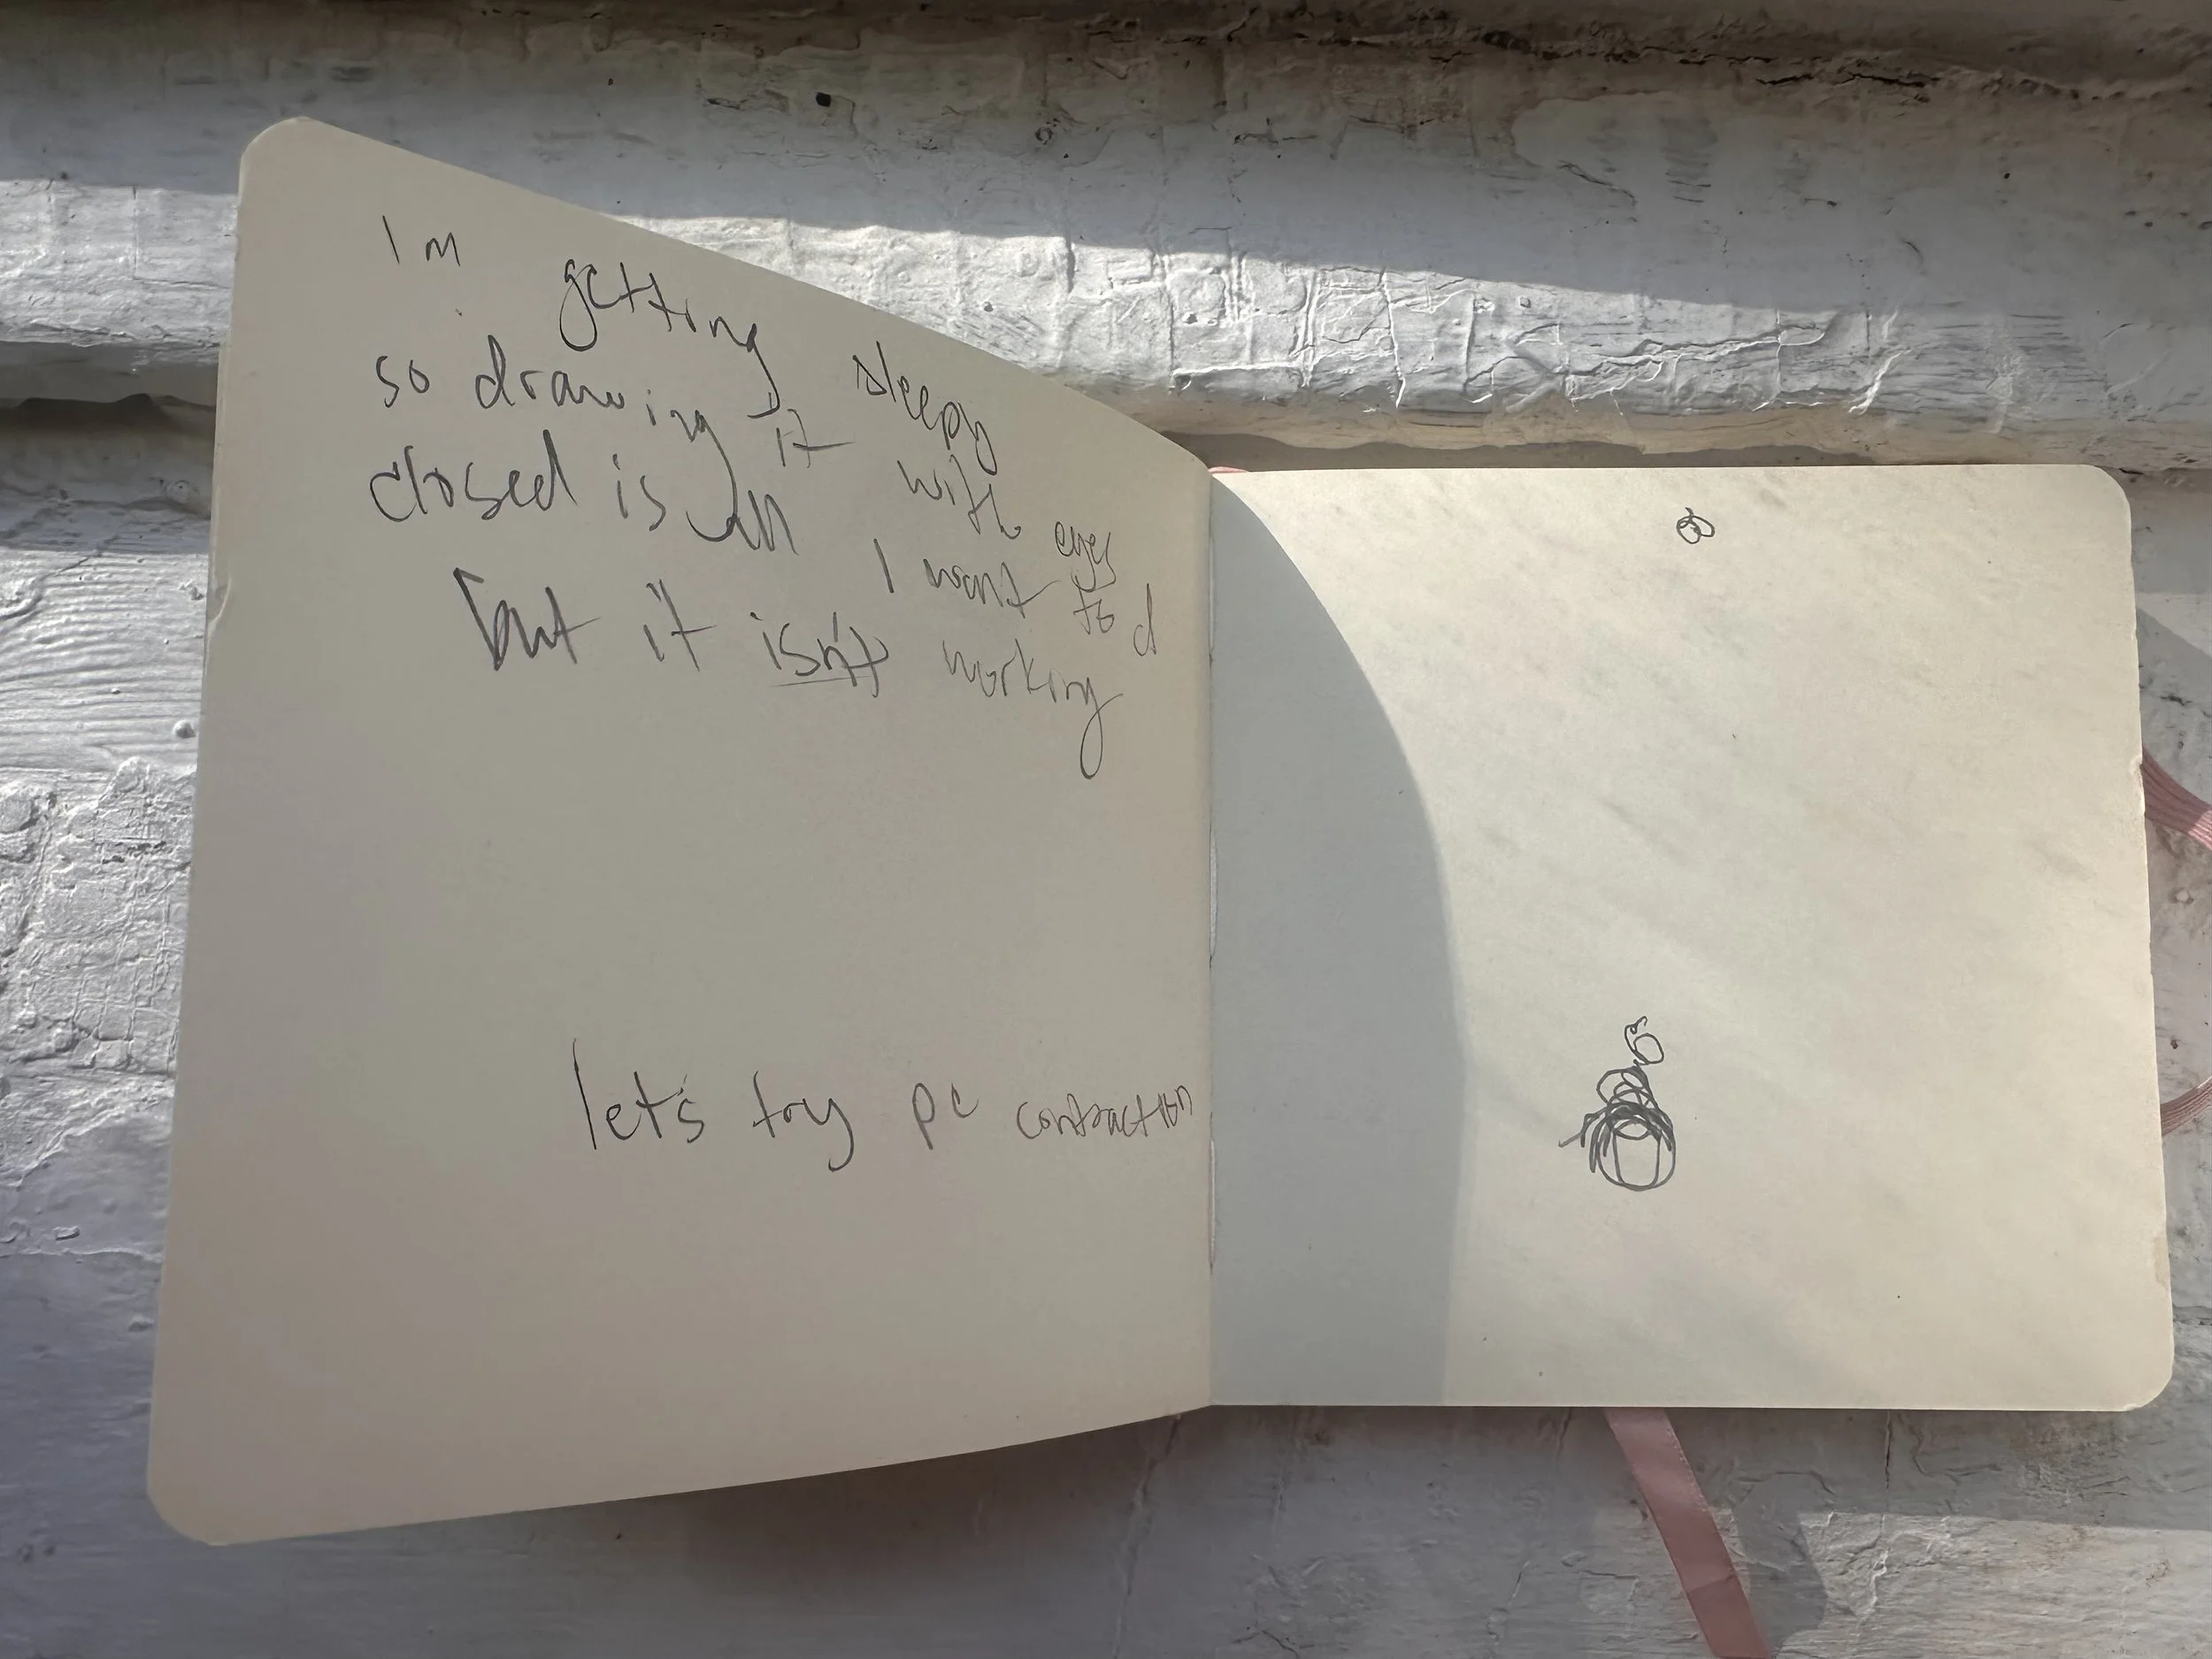 Im getting sleepy
so drawing it with eyes
closed is all I want to d
but it isn't working
let's try pc contraction